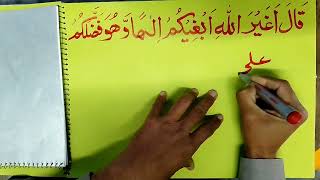 قَالَ اَغَيْرَ اللّٰهِ اَبْغِيْكُمْ اِلٰهًا وَّهُوَ فَضَّلَكُمْ
علی